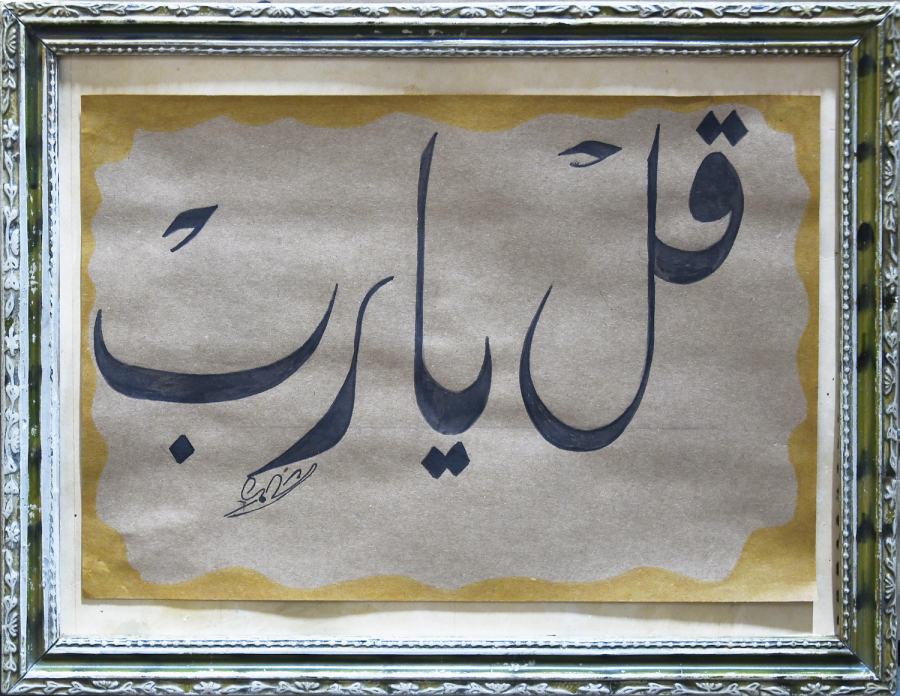 قل يا رب